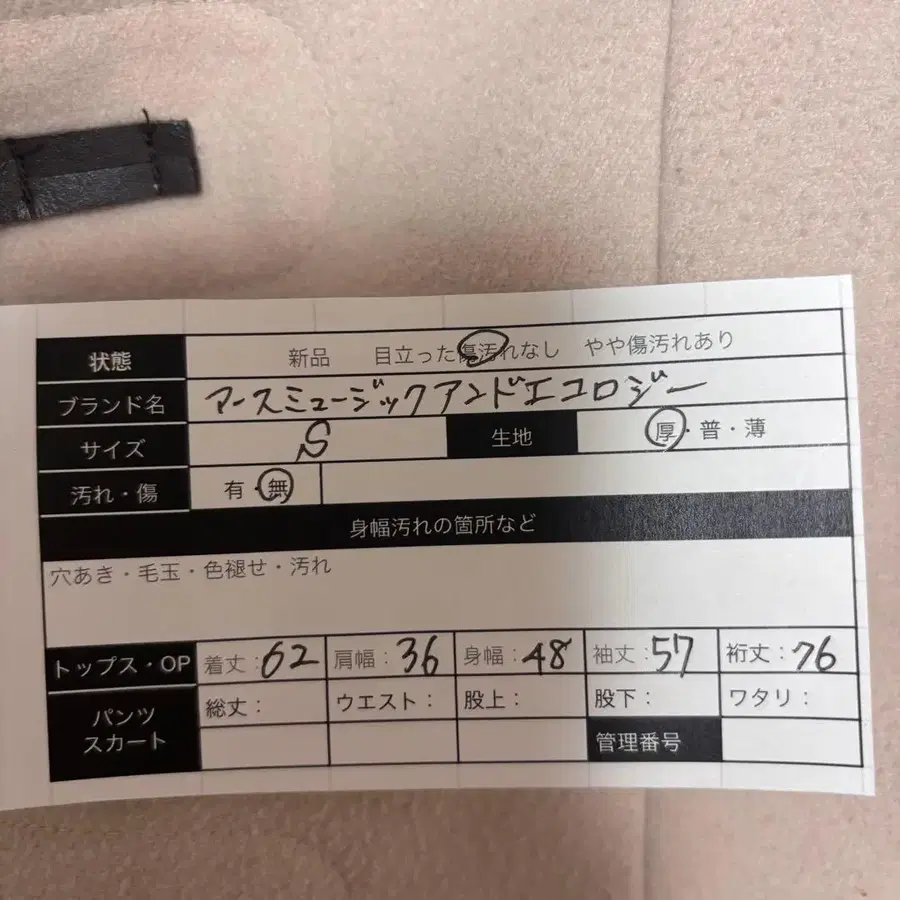 状態 新品 目立った傷汚れなし やや傷汚れあり
ブランド名 アースミュージックアンドエコロジー
サイズ S 生地 厚・普・薄
汚れ・傷 有・無
身幅汚れの箇所など
穴あき・毛玉・色褪せ・汚れ
トップス・OP 着丈:62 肩幅:36 身幅:48 袖丈:57 裄丈:76
パンツ スカート 総丈: ウエスト: 股上: 股下: ワタリ:
管理番号